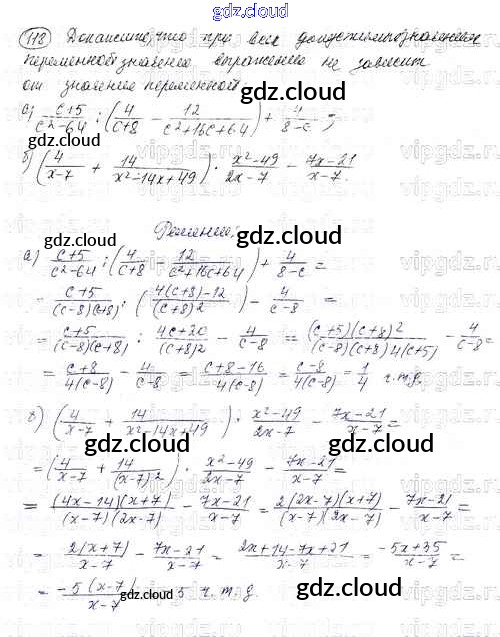 gdz.cloud
118 Докажите, что при всех допустимых значениях
переменной значение выражения не зависит
от значения переменной:
а) (c+5)/(c²-64) : (4/(c+8) - 12/(c²+16c+64)) + 4/(8-c) ;
б) (4/(x-7) + 14/(x²-14x+49)) · (x²-49)/(2x-7) - (7x-21)/(x-7)
Решение:
а) (c+5)/(c²-64) : (4/(c+8) - 12/(c²+16c+64)) + 4/(8-c) =
= (c+5)/((c-8)(c+8)) : ((4(c+8)-12)/(c+8)²) - 4/(c-8) =
= (c+5)/((c-8)(c+8)) : (4c+20)/(c+8)² - 4/(c-8) = ((c+5)(c+8)²)/((c-8)(c+8)4(c+5)) - 4/(c-8) =
= (c+8)/(4(c-8)) - 4/(c-8) = (c+8-16)/(4(c-8)) = (c-8)/(4(c-8)) = 1/4 ч.т.д.
б) (4/(x-7) + 14/(x²-14x+49)) · (x²-49)/(2x-7) - (7x-21)/(x-7) =
= (4/(x-7) + 14/(x-7)²) · (x²-49)/(2x-7) - (7x-21)/(x-7) =
= ((4x-14)(x+7))/((x-7)(2x-7)) - (7x-21)/(x-7) = (2(2x-7)(x+7))/((x-7)(2x-7)) - (7x-21)/(x-7) =
= (2(x+7))/(x-7) - (7x-21)/(x-7) = (2x+14-7x+21)/(x-7) = (-5x+35)/(x-7) =
= (-5(x-7))/(x-7) 5 ч.т.д.
gdz.cloud